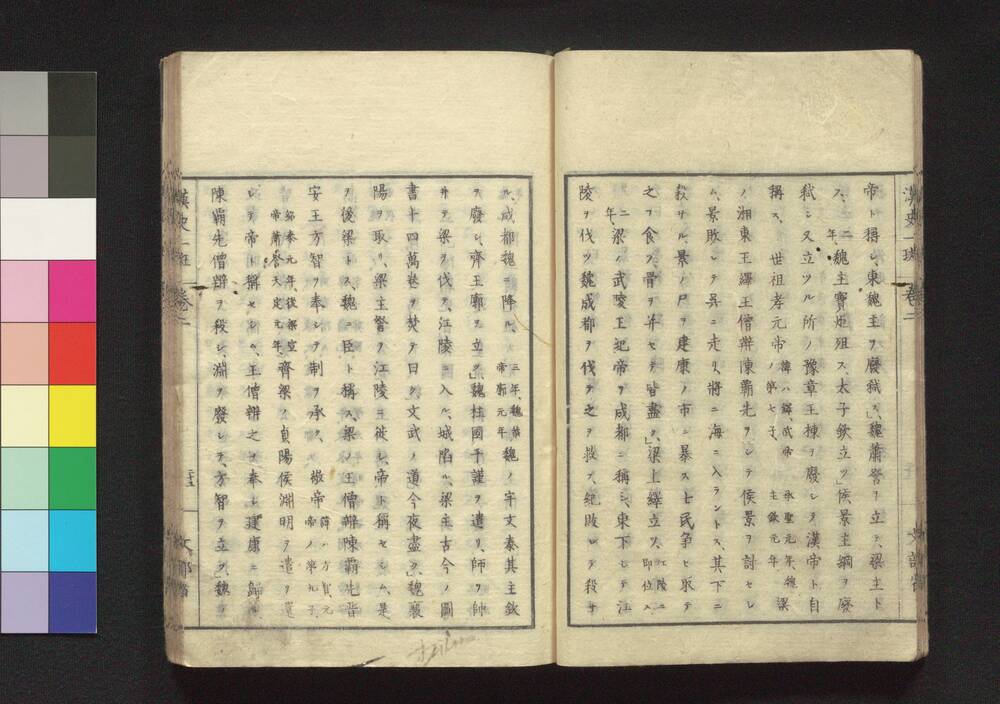 帝ト稱シ、東魏主ヲ廢弑ス、魏蕭詧ヲ立テ、梁主ト
ス、二年、魏主寶炬殂ス、太子欽立ツ」侯景主綱ヲ廢
弑シ又立ツル所ノ豫章王棟ヲ廢シテ漢帝ト自
稱ス、世祖孝元帝 諱ハ繹、武帝ノ第七子、 承聖元年、魏主欽元年 梁
ノ湘東王繹王僧辯陳霸先ヲシテ侯景ヲ討セシ
ム、景敗レテ呉ニ走リ、將ニ海ニ入ラントス、其下ニ
殺サル、景ノ尸ヲ建康ノ市ニ暴ス士民争ヒ取テ
之ヲ食ヲ骨ヲ并セテ皆盡ク」梁上繹立ツ、江陵ニ即位ス
二年梁ノ武陵王紀帝ヲ成都ニ稱シ、東下シテ江
陵ヲ伐ツ魏成都ヲ伐テ之ヲ救フ、紀敗レテ殺サ
ル、成都魏ニ降ル、 三年、魏恭帝廓元年 魏ノ宇文泰其主欽
ヲ廢シ、齊王廓ヲ立ツ」魏柱國于謹ヲ遣リ、師ヲ帥
井テ梁ヲ伐ス、江陵ニ入ル、城陷ル、梁主古今ノ圖
書十四萬卷ヲ焚テ曰ク、文武ノ道今夜盡ク」魏襄
陽ヲ取リ、梁主詧ヲ江陵ニ徙シ、帝ト稱セシム、是
ヲ後梁トス、魏ニ臣ト稱ス、梁ノ王僧辯陳霸先晋
安王方智ヲ奉シテ制ヲ承ク、 敬帝 諱ハ方智、元帝ノ第九子、
紹泰元年後梁宣帝蕭詧大定元年、 齊梁ノ貞陽侯淵明ヲ遣リ還
シテ帝ト稱セシム、王僧辯之ヲ奉シ建康ニ歸ル、
陳霸先僧辯ヲ殺シ、淵ヲ廢シテ、方智ヲ立ツ」魏ノ
漢史一班 卷二
文部省